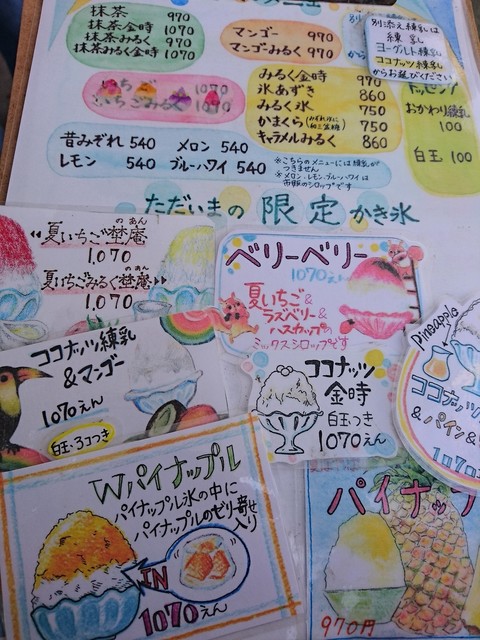 抹茶 970
抹茶金時 1070
抹茶みるく 970
抹茶みるく金時 1070
マンゴー 970
マンゴーみるく 970
別添え練乳は
練乳
ヨーグルト練乳
ココナッツ練乳
からお選びください
いちご 1070
いちごみるく 1070
みるく金時 970
氷あずき 860
みるく氷 750
かまくら 750
キャラメルみるく 860
トッピング
おかわり練乳
100
白玉 100
昔みぞれ 540 メロン 540
レモン 540 ブルーハワイ 540
※こちらのメニューには練乳が
つきません
※メロン・レモン・ブルーハワイは
市販のシロップです
ただいまの限定かき氷
のあん
夏いちご埜庵
1,070
のあん
夏いちごみるく埜庵
1,070
ベリーベリー
1070えん
夏いちご&
ラズベリー&
ハスカップの
ミックスシロップです
ココナッツ練乳
&マンゴー
1070えん
白玉・3コつき
ココナッツ
金時
白玉つき
1070えん
Pineapple
ココナッツ
&パイン&
1070
Wパイナップル
パイナップル氷の中に
パイナップルのゼリー寄せ
入り
IN
1070えん
パイナップ
970円